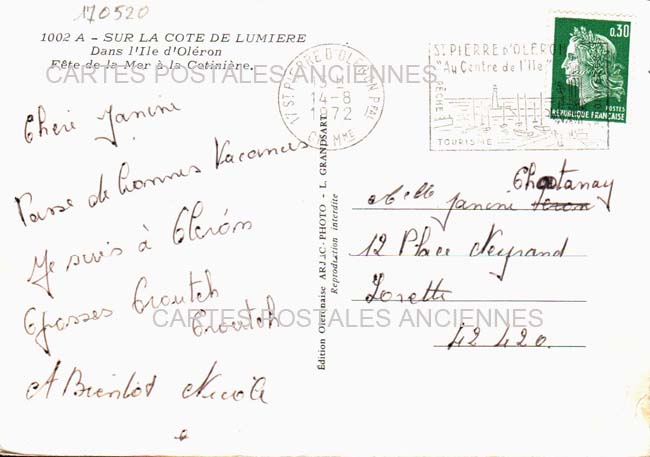 170520
1002 A - SUR LA COTE DE LUMIERE
Dans l'Ile d'Oléron
Fête de la Mer à la Cotinière.
CARTES POSTALES ANCIENNES
Cheré Janine
Passe de bonnes Vacances
Je suis à Oléron
Grosses Croutch
Croutch
A Bientot Nicole
Édition Oléronaise ARJAC-PHOTO - L. GRANDSART
Reproduction interdite
17 ST PIERRE D'OLERON Ppal
14-8
1972
CH. MME
ST PIERRE d'OLERON
"Au Centre de l'Ile"
PÊCHE
TOURISME
0,30
POSTES
REPUBLIQUE FRANÇAISE
Chatanay
Melle Janine
12 Place Neyrand
Lorette
42 420.
CARTES POSTALES ANCIENNES